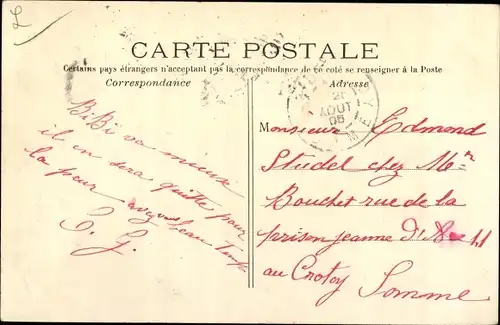 L
CARTE POSTALE
Certains pays étrangers n'acceptant pas la correspondance de ce coté se renseigner à la Poste
Correspondance
BiBi va mieux
il en sera quitte pour
la peur avez beau Temps
C. G.
Adresse
21
AOUT
05
Monsieur Edmond
Studel chez Mr
Bouchet rue de la
prison jeanne d'
au Crotoy Somme